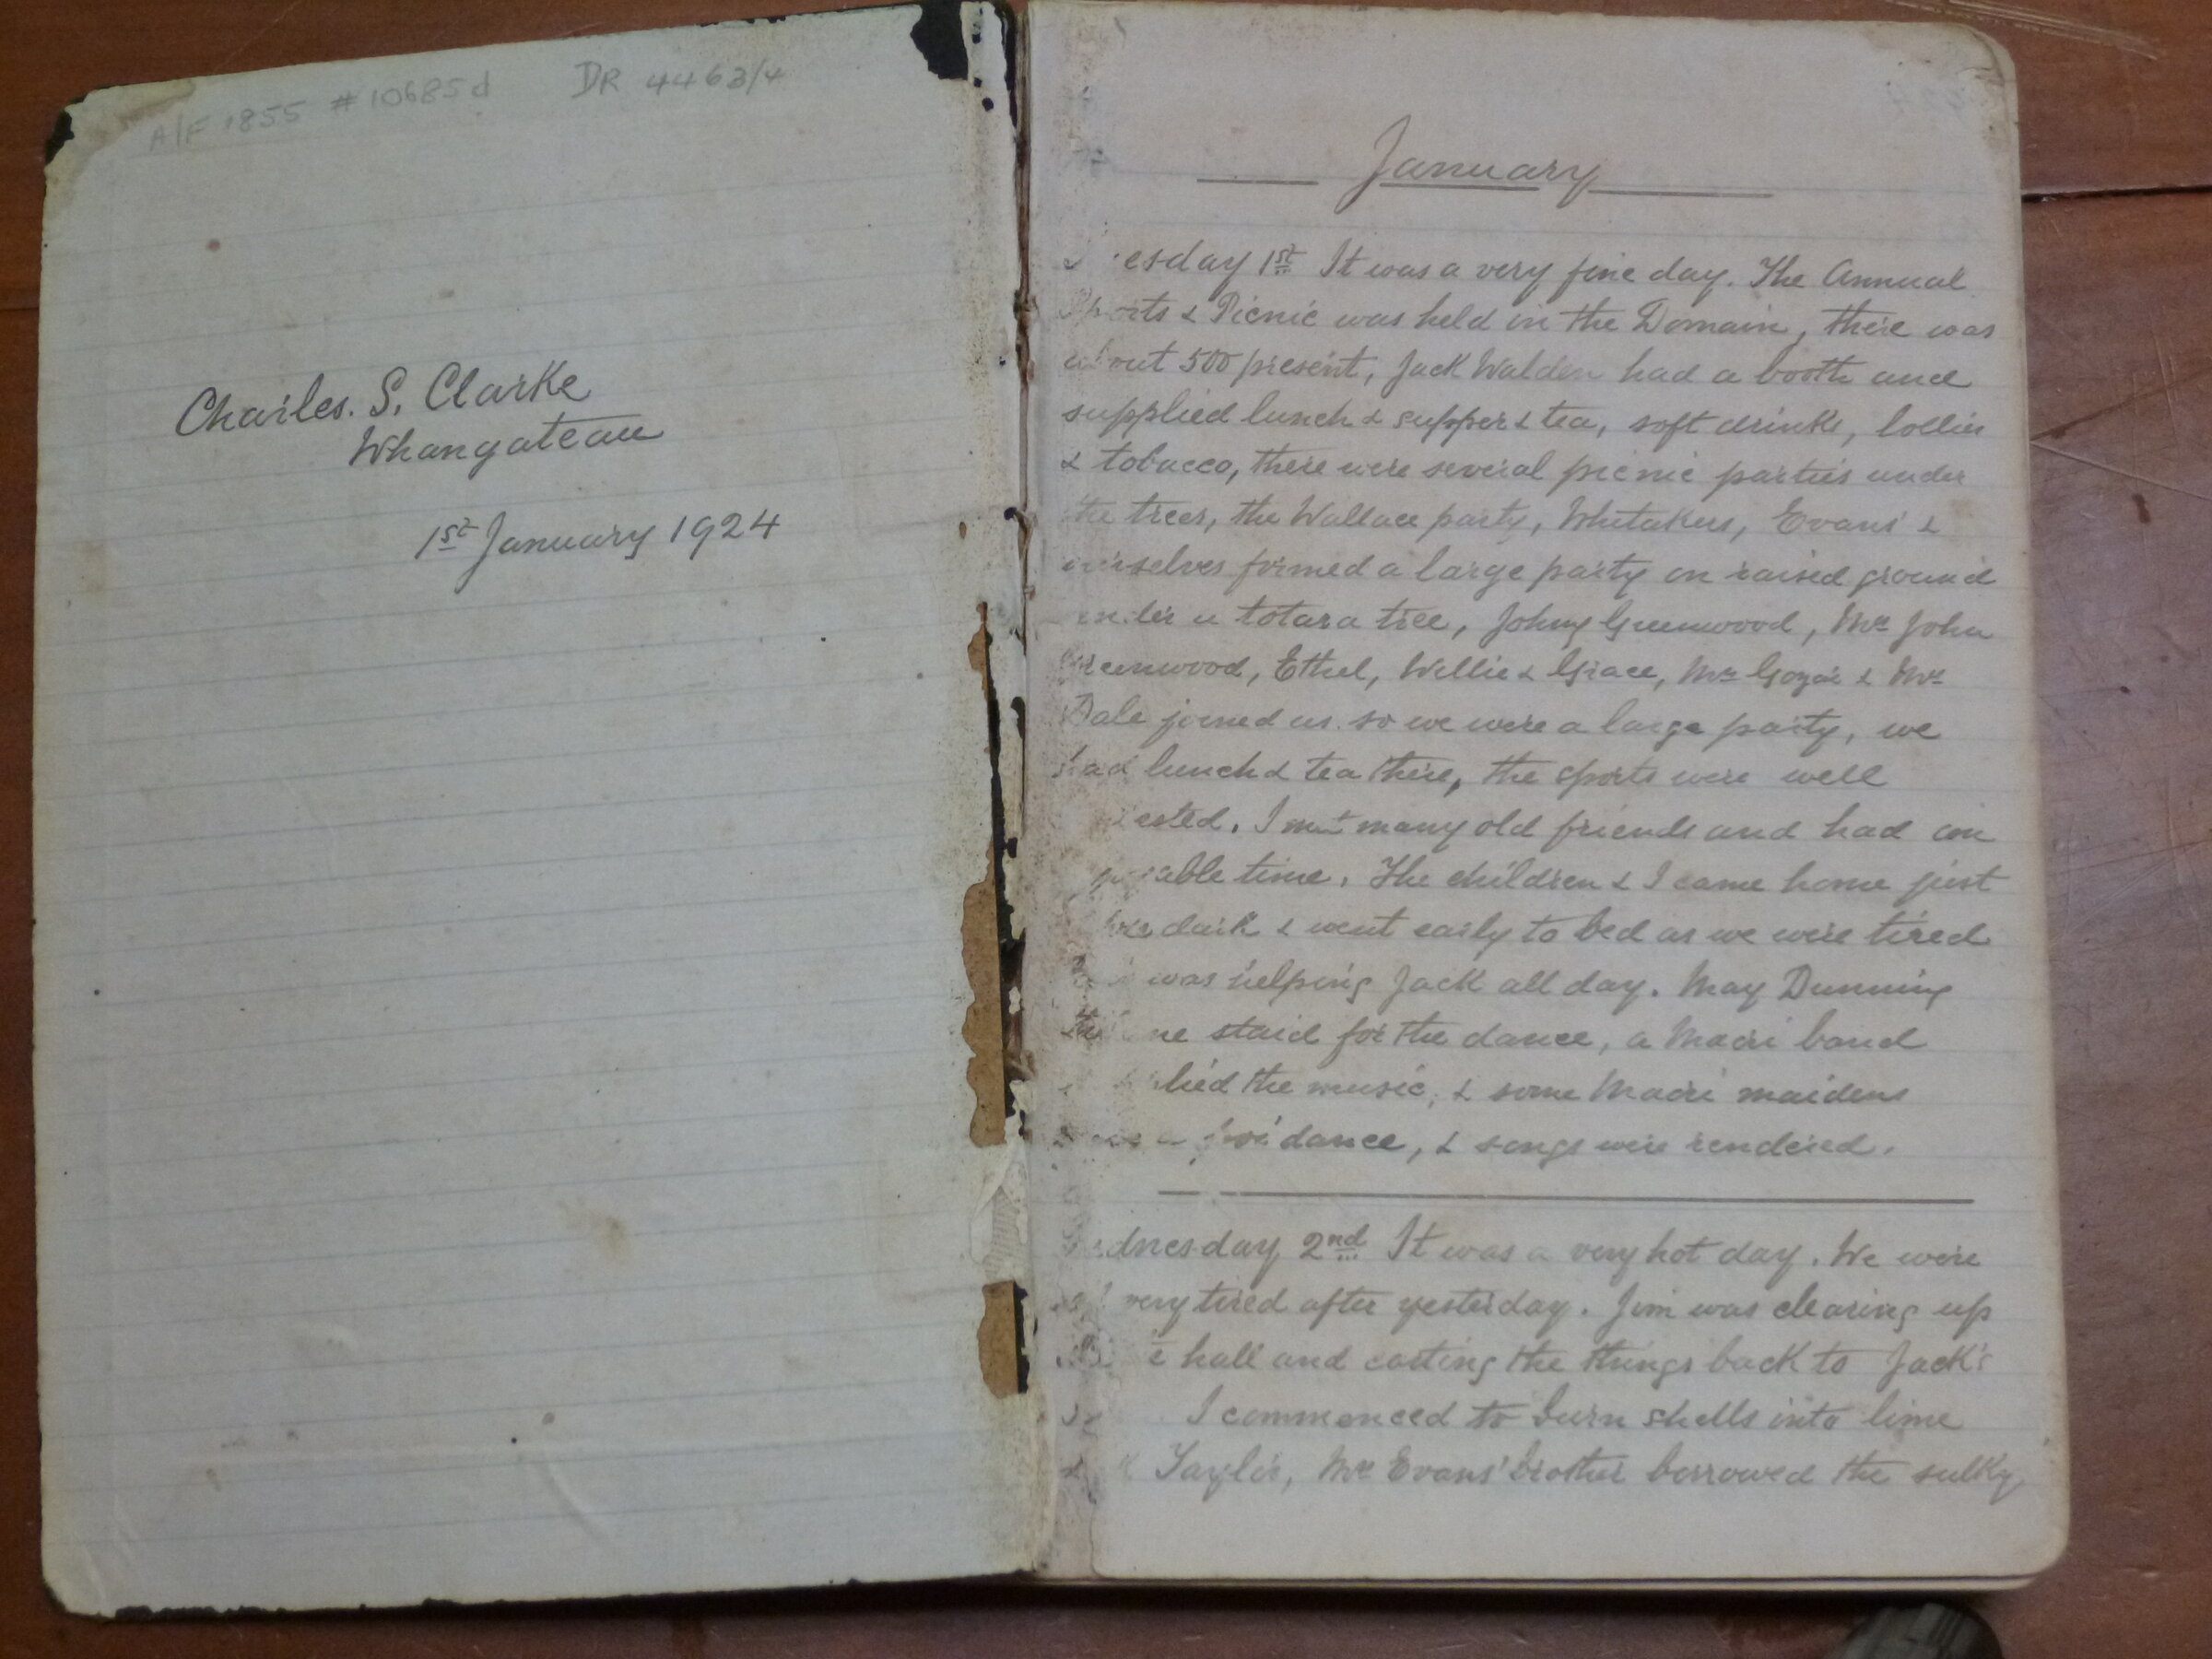 A/F 1855 #10685d DR 4463/4
Charles. S. Clarke
Whangateau
1st January 1924
January
esday 1st It was a very fine day. The Annual
Sports & Picnic was held in the Domain, there was
about 500 present, Jack Walden had a booth and
supplied lunch & supper & tea, soft drinks, lollies
& tobacco, there were several picnic parties under
the trees, the Wallace party, Whitakers, Evans' &
ourselves formed a large party on raised ground
under a totara tree, Johny Greenwood, Mrs John
Greenwood, Ethel, Willie & Grace, &
Dale joined us. so we were a large party, we
had lunch & tea there, the sports were well
ested. I met many old friends and had an
able time. The children & I came home just
dark & went early to bed as we were tired
was helping Jack all day. May Dunning
staid for the dance, a Maori band
lied the music, & some Maori maidens
poi dance, & songs were rendered.
dnesday 2nd It was a very hot day. We were
very tired after yesterday. Jim was clearing up
hall and carting the things back to Jack's
I commenced to burn shells into lime
Taylor, Mrs Evans' brother borrowed the sulky